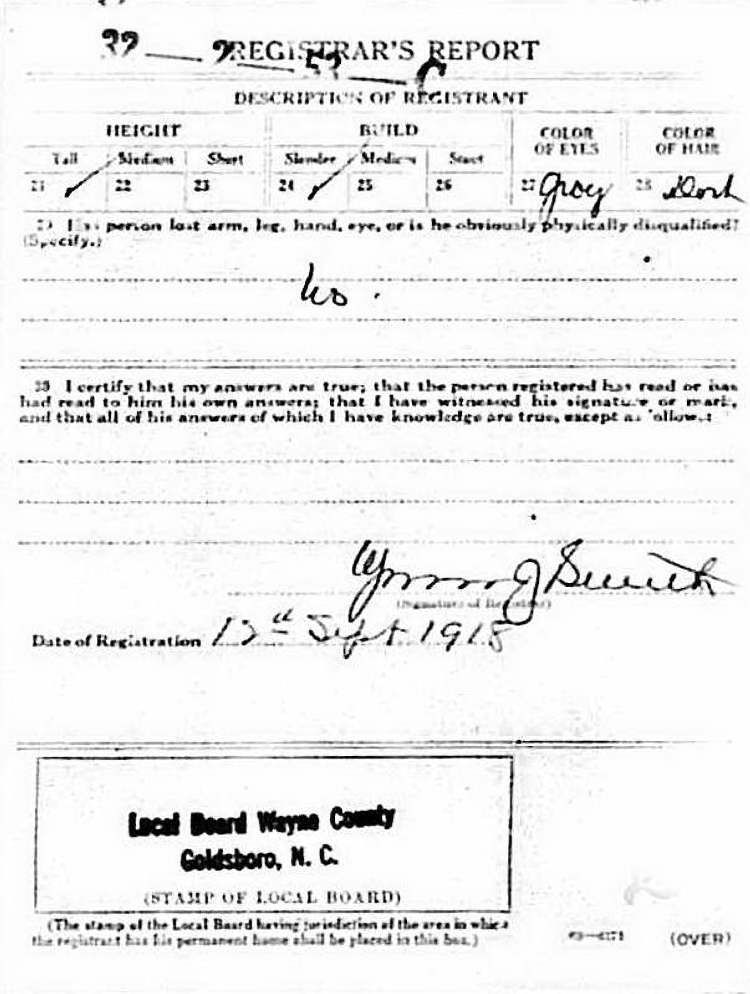 REGISTRAR'S REPORT
DESCRIPTION OF REGISTRANT
HEIGHT BUILD COLOR OF EYES COLOR OF HAIR
Tall Medium Short Slender Medium Stout
21 ✓ 22 23 24 ✓ 25 26 27 Gray 28 Dark
29 Has person lost arm, leg, hand, eye, or is he obviously physically disqualified?
(Specify.)
No.
30 I certify that my answers are true; that the person registered has read or has
had read to him his own answers; that I have witnessed his signature or mark,
and that all of his answers of which I have knowledge are true, except as follows:
J Smith
(Signature of Registrar)
Date of Registration 12th Sept 1918
Local Board Wayne County
Goldsboro, N. C.
(STAMP OF LOCAL BOARD)
(The stamp of the Local Board having jurisdiction of the area in which
the registrant has his permanent home shall be placed in this box.)
(OVER)